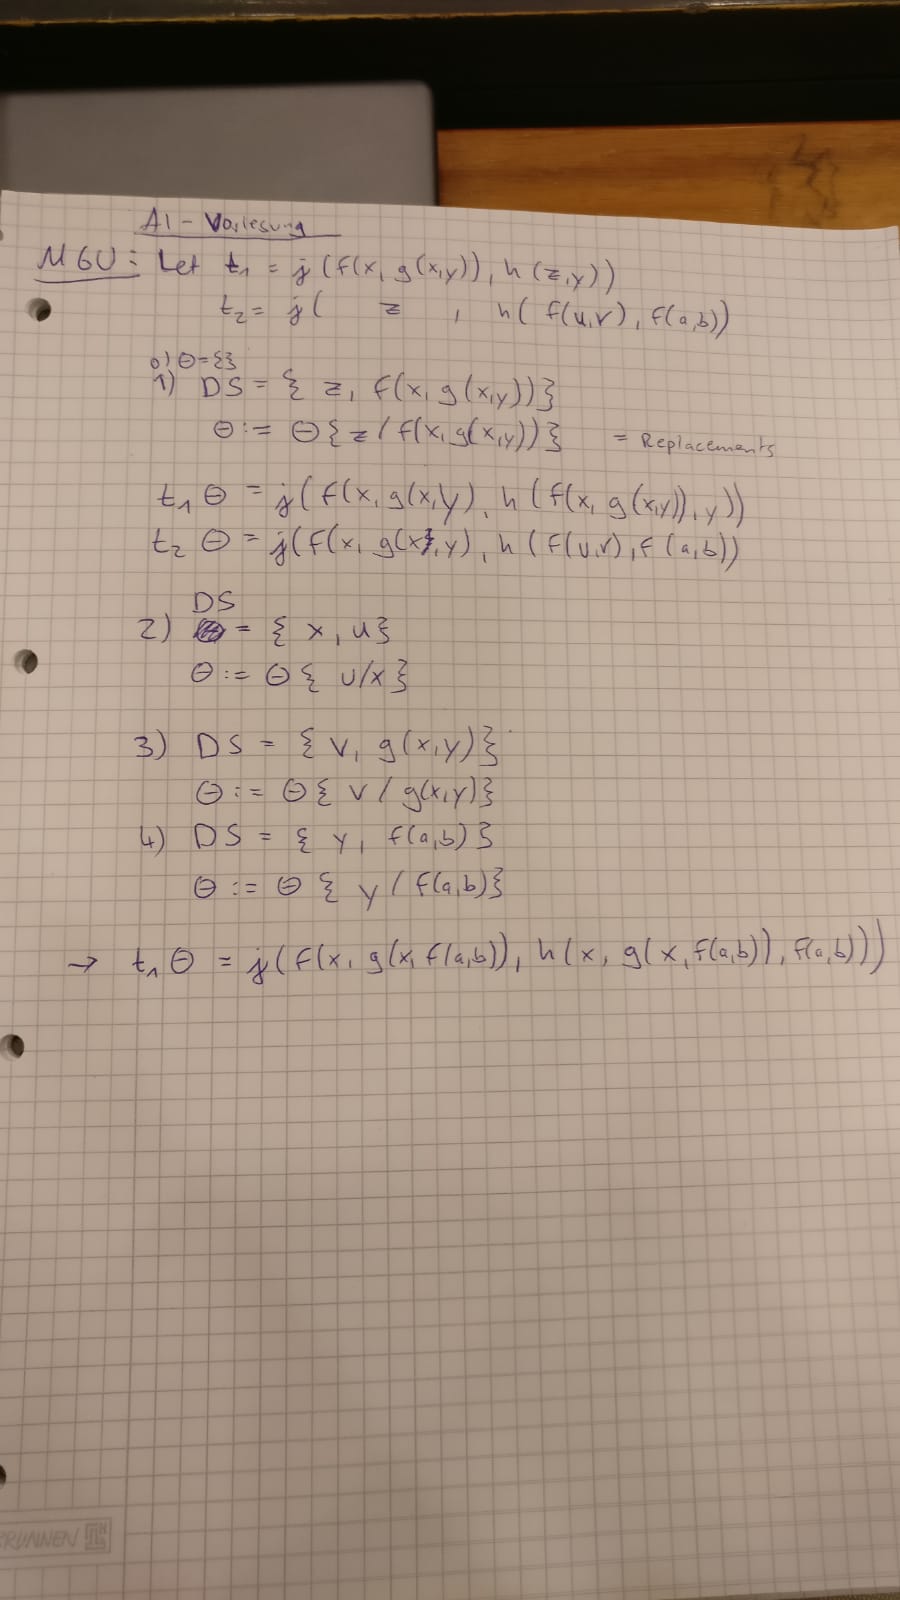 AI - Vorlesung
MGU: Let t₁ = j(f(x, g(x,y)), h(z,y))
t₂ = j( z , h( f(u,v), f(a,b))
0) Θ={}
1) DS = { z, f(x, g(x,y))}
Θ := Θ{z/f(x,g(x,y))} = Replacements
t₁ Θ = j(f(x, g(x,y), h(f(x, g(x,y)), y))
t₂ Θ = j(f(x, g(x,y), h(f(u,v), f(a,b))
DS
2) = { x, u}
Θ := Θ{ u/x}
3) DS = { v, g(x,y)}
Θ := Θ{ v/g(x,y)}
4) DS = { y, f(a,b)}
Θ := Θ{ y/f(a,b)}
→ t₁Θ = j(f(x, g(x, f(a,b)), h(x, g(x, f(a,b)), f(a,b)))
BRUNNEN